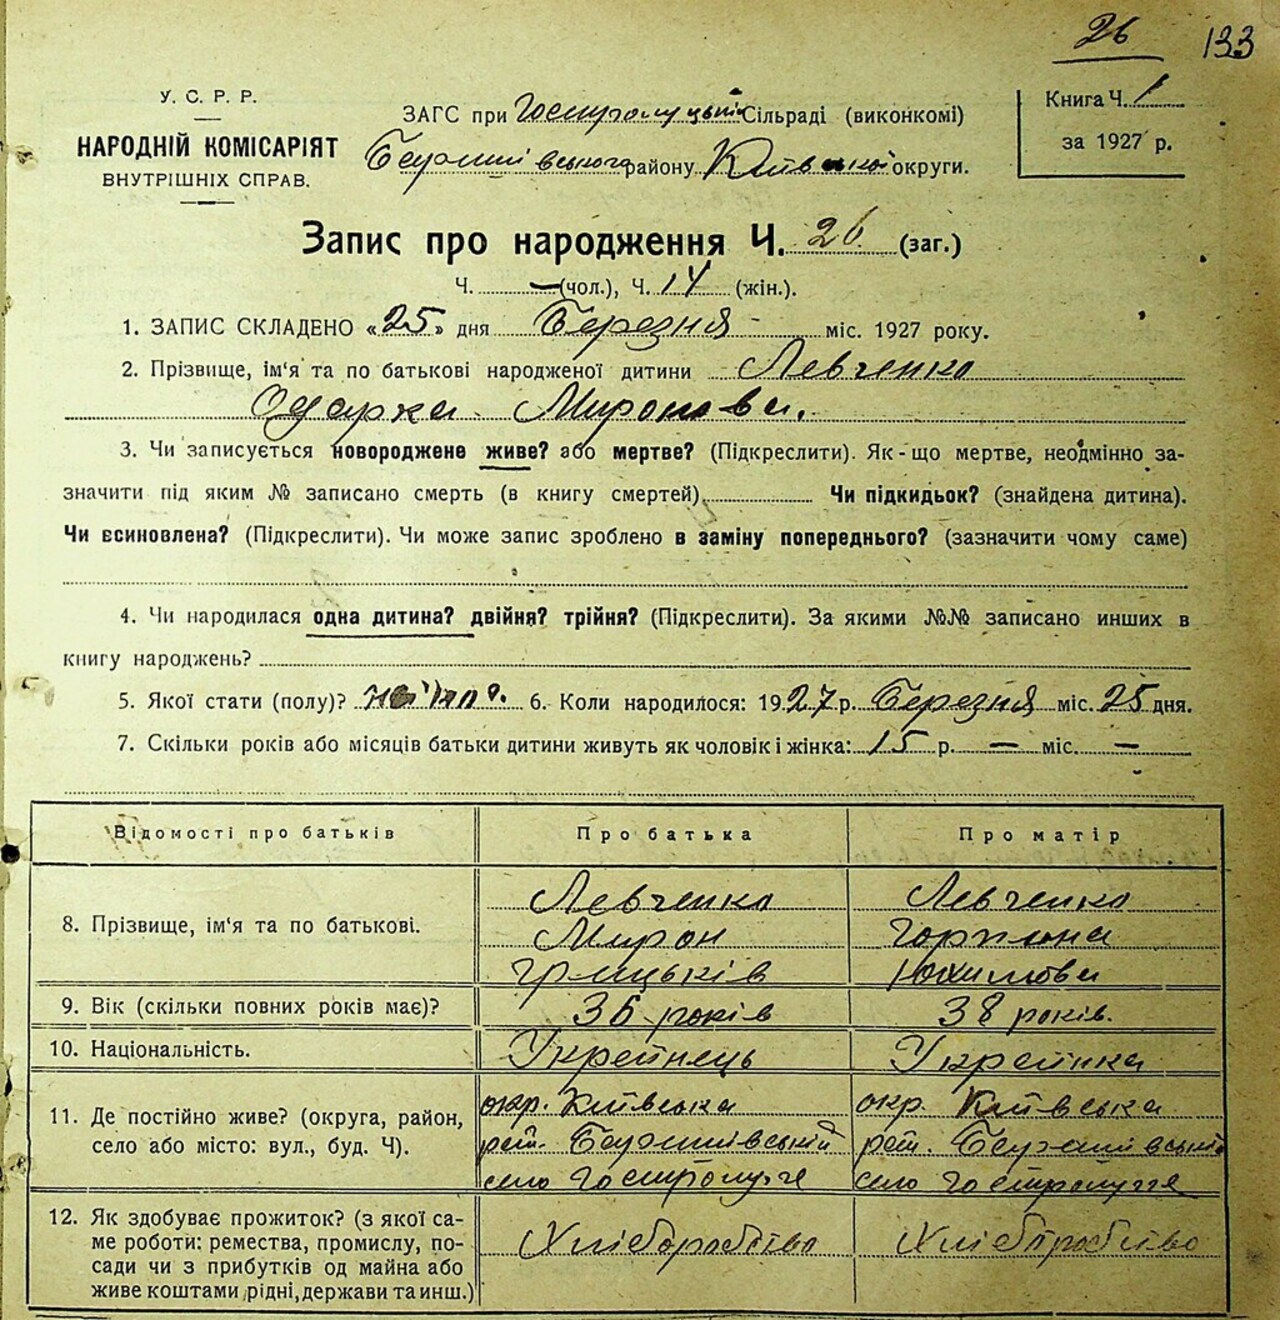 26 133
У. С. Р. Р.
НАРОДНІЙ КОМІСАРІЯТ
ВНУТРІШНІХ СПРАВ.
ЗАГС при Гостролуцькій Сільраді (виконкомі)
Баришівського району Київської округи.
Книга Ч. 1
за 1927 р.
Запис про народження Ч. 26 (заг.)
Ч. — (чол.), Ч. 14 (жін.).
1. ЗАПИС СКЛАДЕНО «25» дня Березня міс. 1927 року.
2. Прізвище, ім'я та по батькові народженої дитини Левченко
Одарка Миронова.
3. Чи записується новороджене живе? або мертве? (Підкреслити). Як-що мертве, неодмінно за-
значити під яким № записано смерть (в книгу смертей) Чи підкидьок? (знайдена дитина).
Чи всиновлена? (Підкреслити). Чи може запис зроблено в заміну попереднього? (зазначити чому саме)
4. Чи народилася одна дитина? двійня? трійня? (Підкреслити). За якими №№ записано инших в
книгу народжень?
5. Якої стати (полу)? 6. Коли народилося: 1927 р. Березня міс. 25 дня.
7. Скільки років або місяців батьки дитини живуть як чоловік і жінка: 15 р. — міс. —
Відомості про батьків Про батька Про матір
8. Прізвище, ім'я та по батькові.
Левченко Левченко
Мирон Горпина
Грицьків Юхимова
9. Вік (скільки повних років має)? 36 років 38 років.
10. Національність. Украйнець Украйнка
11. Де постійно живе? (округа, район,
село або місто: вул., буд. Ч).
окр. Київська окр. Київська
рай. Баришівський рай. Баришівський
село Гостролуччє село Гостролуччє
12. Як здобуває прожиток? (з якої са-
ме роботи: ремества, промислу, по-
сади чи з прибутків од майна або
живе коштами рідні, держави та инш.)
Хліборобство Хліборобство